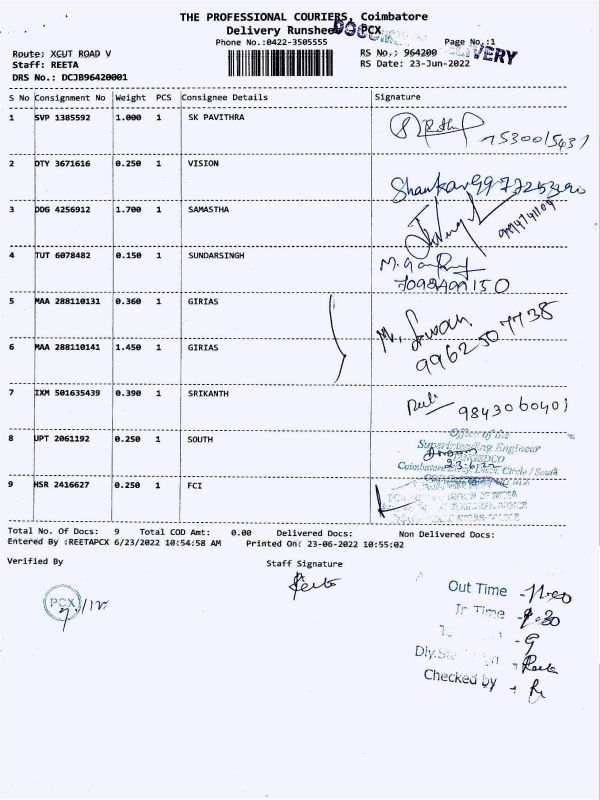 THE PROFESSIONAL COURIERS, Coimbatore
Delivery Runsheet PCX
Phone No.:0422-3505555
Page No.:1
DELIVERY
Route: XCUT ROAD V
RS No.: 964200
Staff: REETA
RS Date: 23-Jun-2022
DRS No.: DCJB96420001
S No Consignment No Weight PCS Consignee Details Signature
1 SVP 1385592 1.000 1 SK PAVITHRA
2 DTY 3671616 0.250 1 VISION
Shankar
3 DDG 4256912 1.700 1 SAMASTHA
4 TUT 6078482 0.150 1 SUNDARSINGH
5 MAA 288110131 0.360 1 GIRIAS
6 MAA 288110141 1.450 1 GIRIAS
9962507738
7 IXM 501635439 0.390 1 SRIKANTH
9843060401
8 UPT 2061192 0.250 1 SOUTH
Office of the
Superintending Engineer
23.6.22
Circle / South
9 HSR 2416627 0.250 1 FCI
Total No. Of Docs: 9 Total COD Amt: 0.00 Delivered Docs: Non Delivered Docs:
Entered By :REETAPCX 6/23/2022 10:54:58 AM Printed On: 23-06-2022 10:55:02
Verified By
Staff Signature
Reeta
PCX
Out Time - 11.00
In Time - 9.30
- 9
Dly.
Checked by